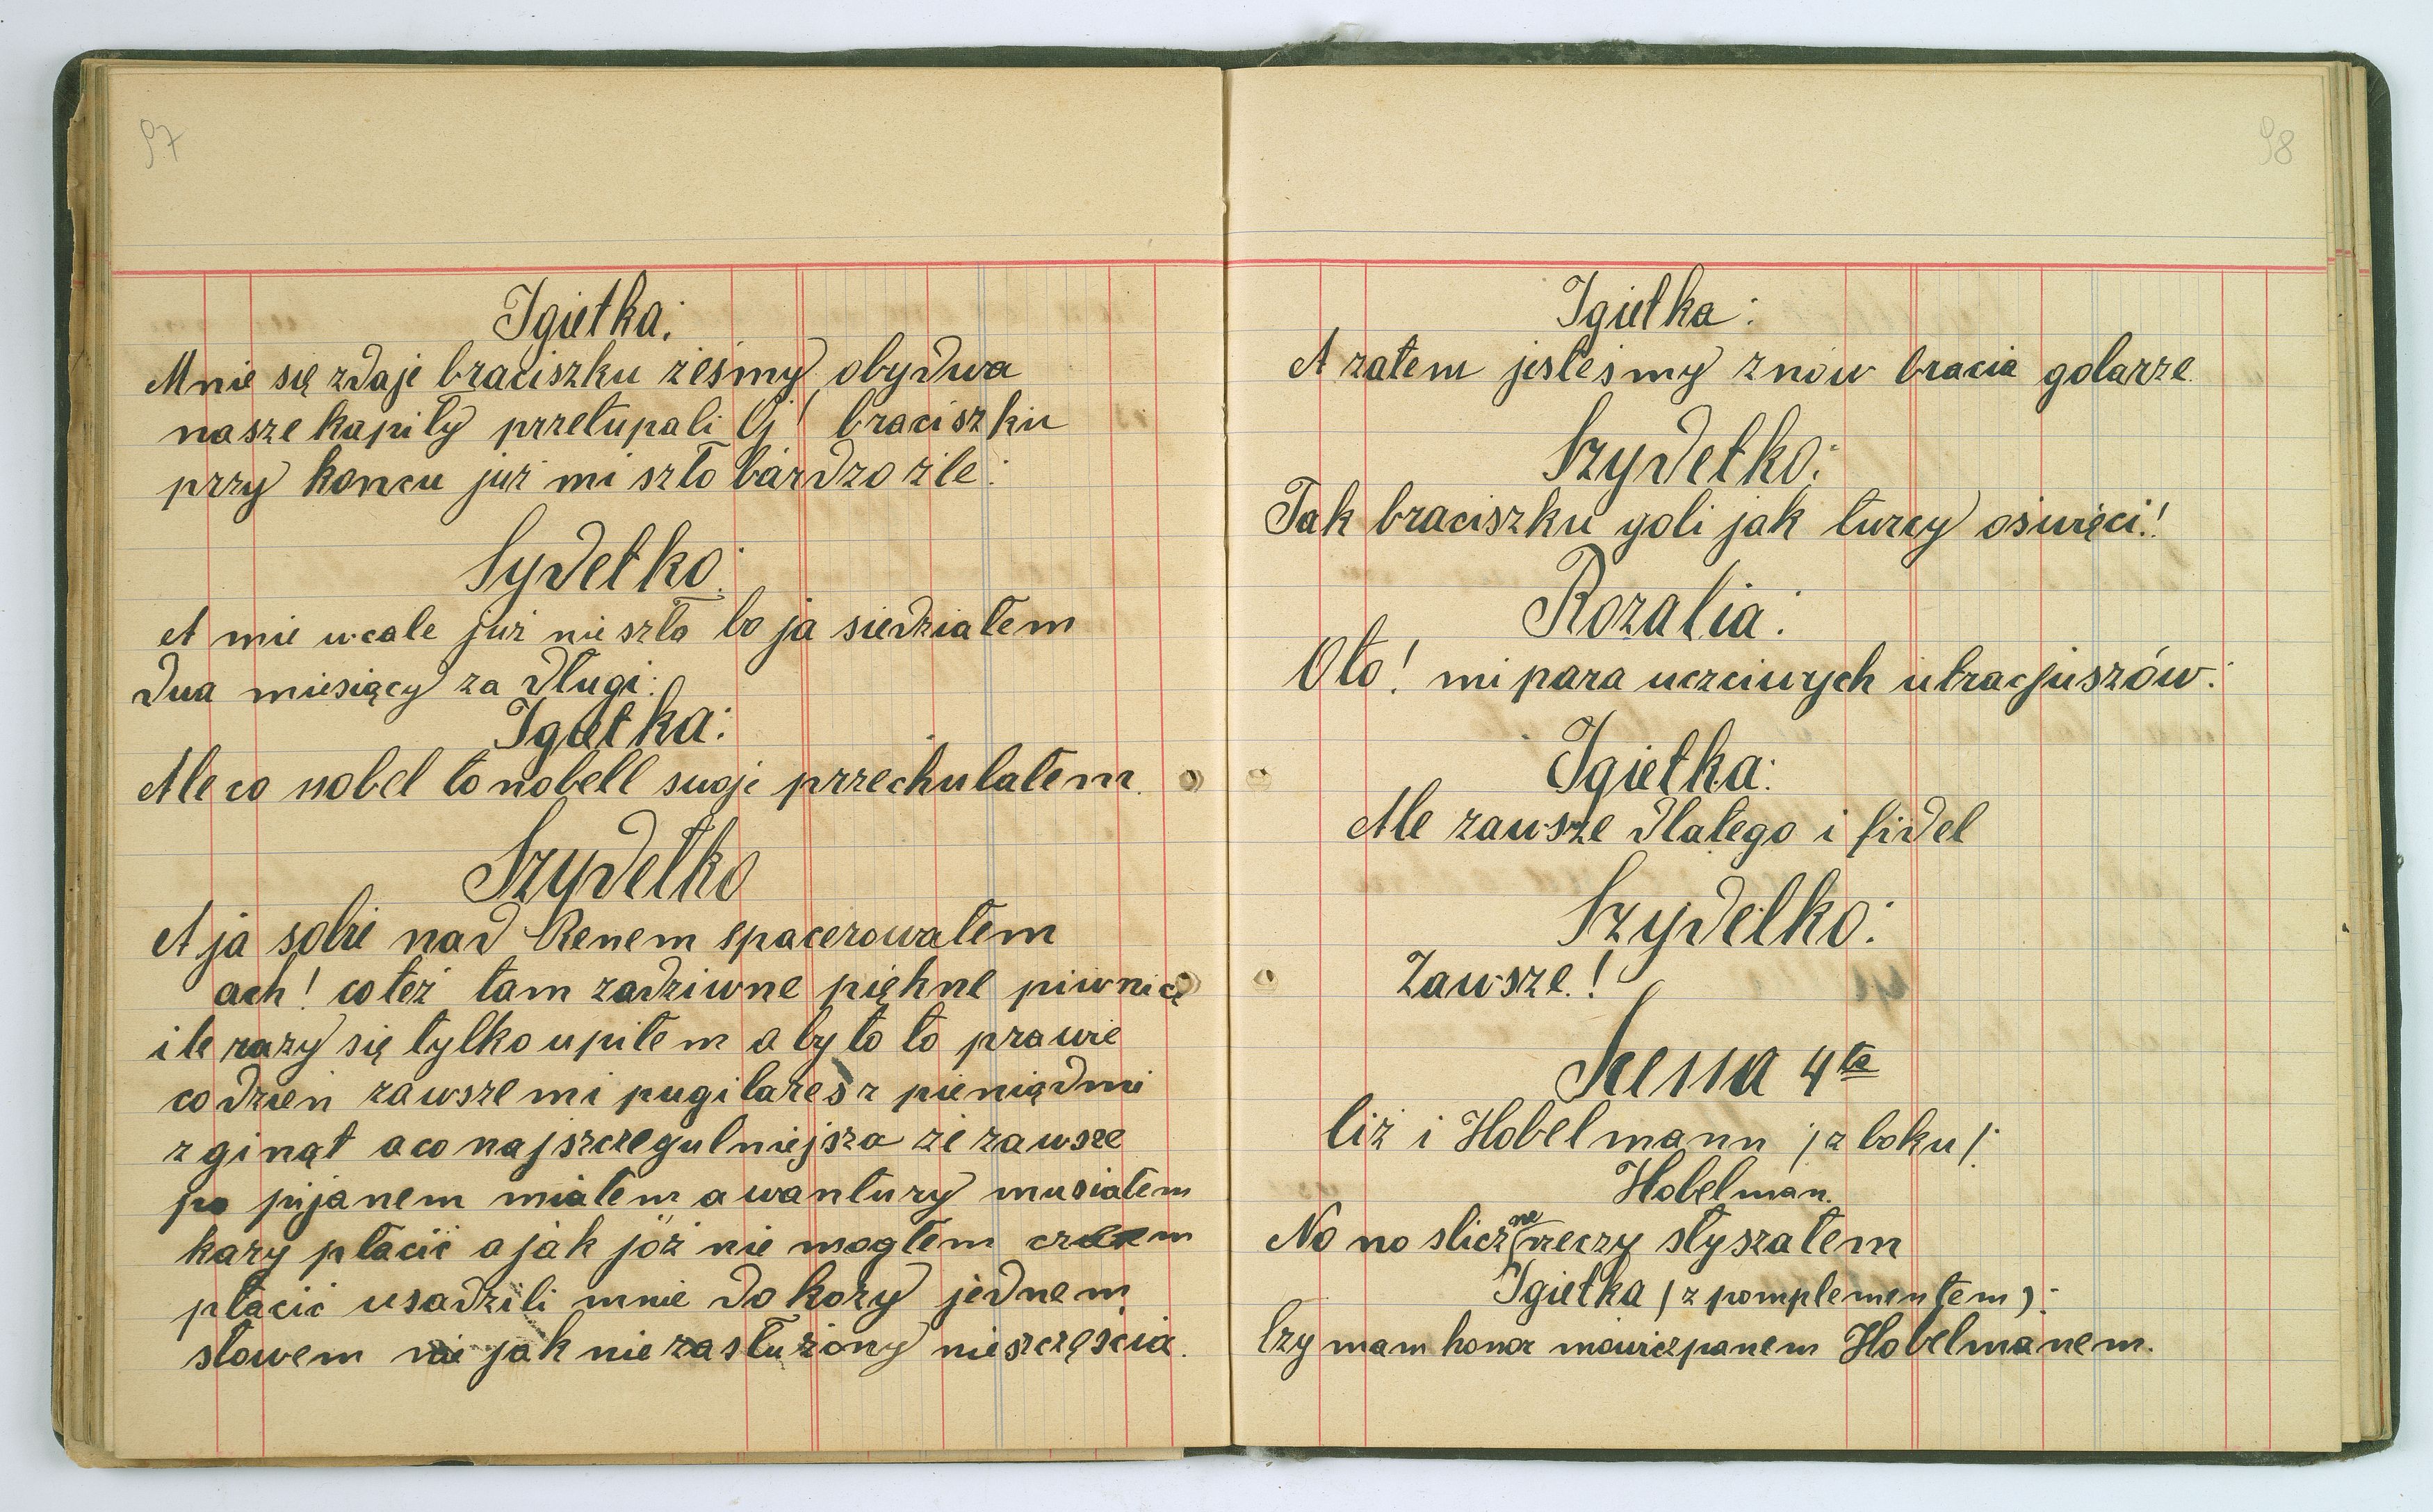 97
Igiełka:
Mnie się zdaje braciszku żeśmy obydwa
nasze kapiły przełupali Oj! braciszku
przy koncu już mi szło bardzo źle:
Sydełko:
A mie wcale już nie szło bo ja siedziałem
dwa miesięcy za długi:
Igiełka:
Ale co nobel to nobell swoje przechulałem.
Szydełko
A ja sobie nad Renem spacerowałem
ach! co też tam zadziwne piękne piwnice
ile razy się tylko upiłem a było to prawie
codzień zawsze mi pugilares z pieniądmi
zginął a co najszczegulniejsza że zawsze
po pijanem miałem awantury musiałem
kary płacić a jak jóż nie mogłem czem
płacić usadzili mnie do kozy jednem
słowem nie jak nie zasłużony nieszczęścia.
98
Igiełka:
A zatem jesteśmy znów bracia golarze.
Szydełko:
Tak braciszku goli jak turcy oświęci!
Rozalia:
Oto! mi para uczciwych utracjuszów:
Igiełka:
Ale zawsze dlatego i fidel
Szydełko:
Zawsze.!
Scena 4ta
Ciż i Hobelmann /z boku/:
Hobelman.
No no sliczne rzeczy słyszałem
Igiełka (z pomplementem):
Czy mam honor mówicz panem Hobelmanem.